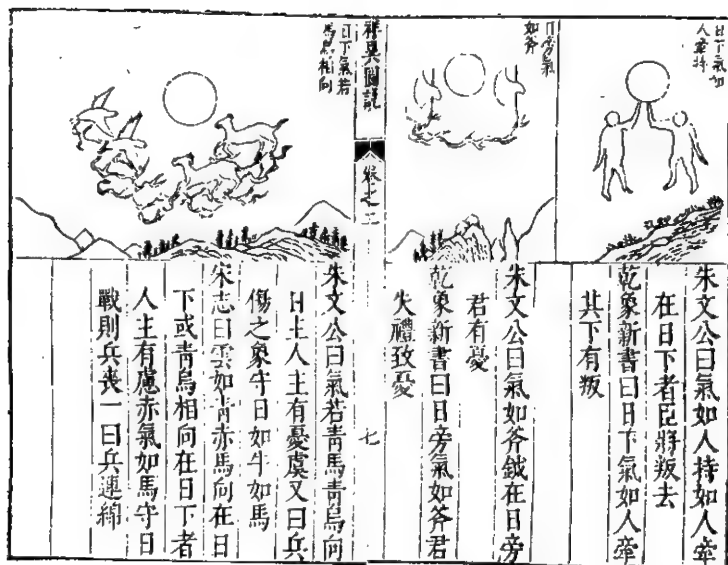 日下氣如
人牽持
朱文公曰氣如人持如人牽
在日下者臣將叛去
乾象新書曰日下氣如人牽
其下有叛
日旁氣
如斧
朱文公曰氣如斧鉞在日旁
君有憂
乾象新書曰日旁氣如斧君
失禮致憂
祥異圖說
卷之二
七
日下氣若
馬鳥相向
朱文公曰氣若青馬青鳥向
日主人主有憂虞又曰兵
傷之象守日如牛如馬
宋志曰雲如青赤馬向在日
下或青鳥相向在日下者
人主有慮赤氣如馬守日
戰則兵喪一曰兵連綿